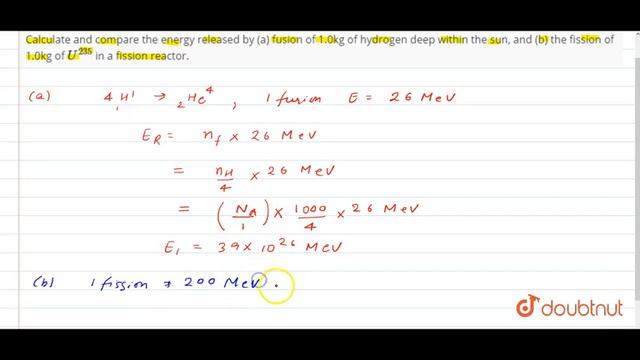 Calculate and compare the energy released by (a) fusion of 1.0kg of hydrogen deep within the sun, and (b) the fission of
1.0kg of U²³⁵ in a fission reactor.
(a) 4 ₁H¹ → ₂He⁴, 1 fusion E = 26 MeV
E_R = n_f × 26 MeV
= n_H/4 × 26 MeV
= (N_A/1) × 1000/4 × 26 MeV
E₁ = 39 × 10²⁶ MeV
(b) 1 fission → 200 MeV.
doubtnut